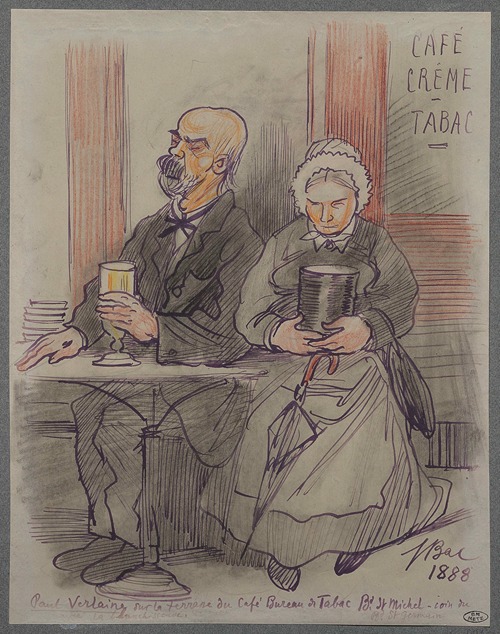 CAFÉ
CRÉME
-
TABAC
F Bac
1888
Paul Verlaine sur la terrasse du Café Bureau de Tabac Bd St Michel - coin du
Bd St Germain